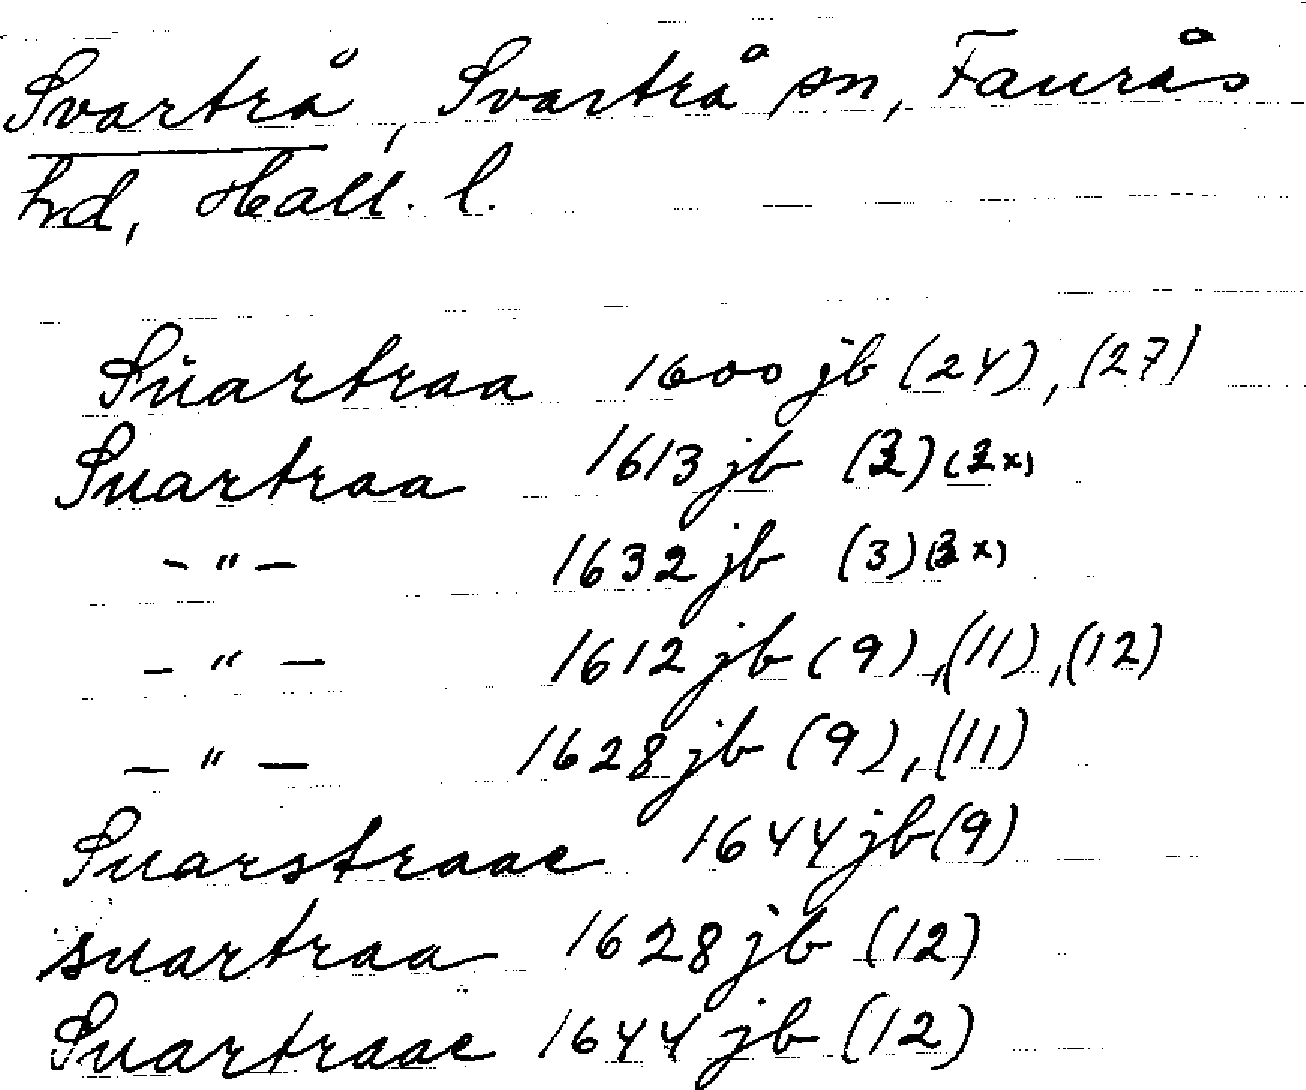 Svartrå, Svartrå sn, Faurås
hd, Hall. l.
Süartraa 1600 jb (24), (27)
Suartraa 1613 jb (2) (2x)
-"- 1632 jb (3) (2x)
-"- 1612 jb (9), (11), (12)
-"- 1628 jb (9), (11)
Suarstraae 1644 jb (9)
suartraa 1628 jb (12)
Suartraae 1644 jb (12)